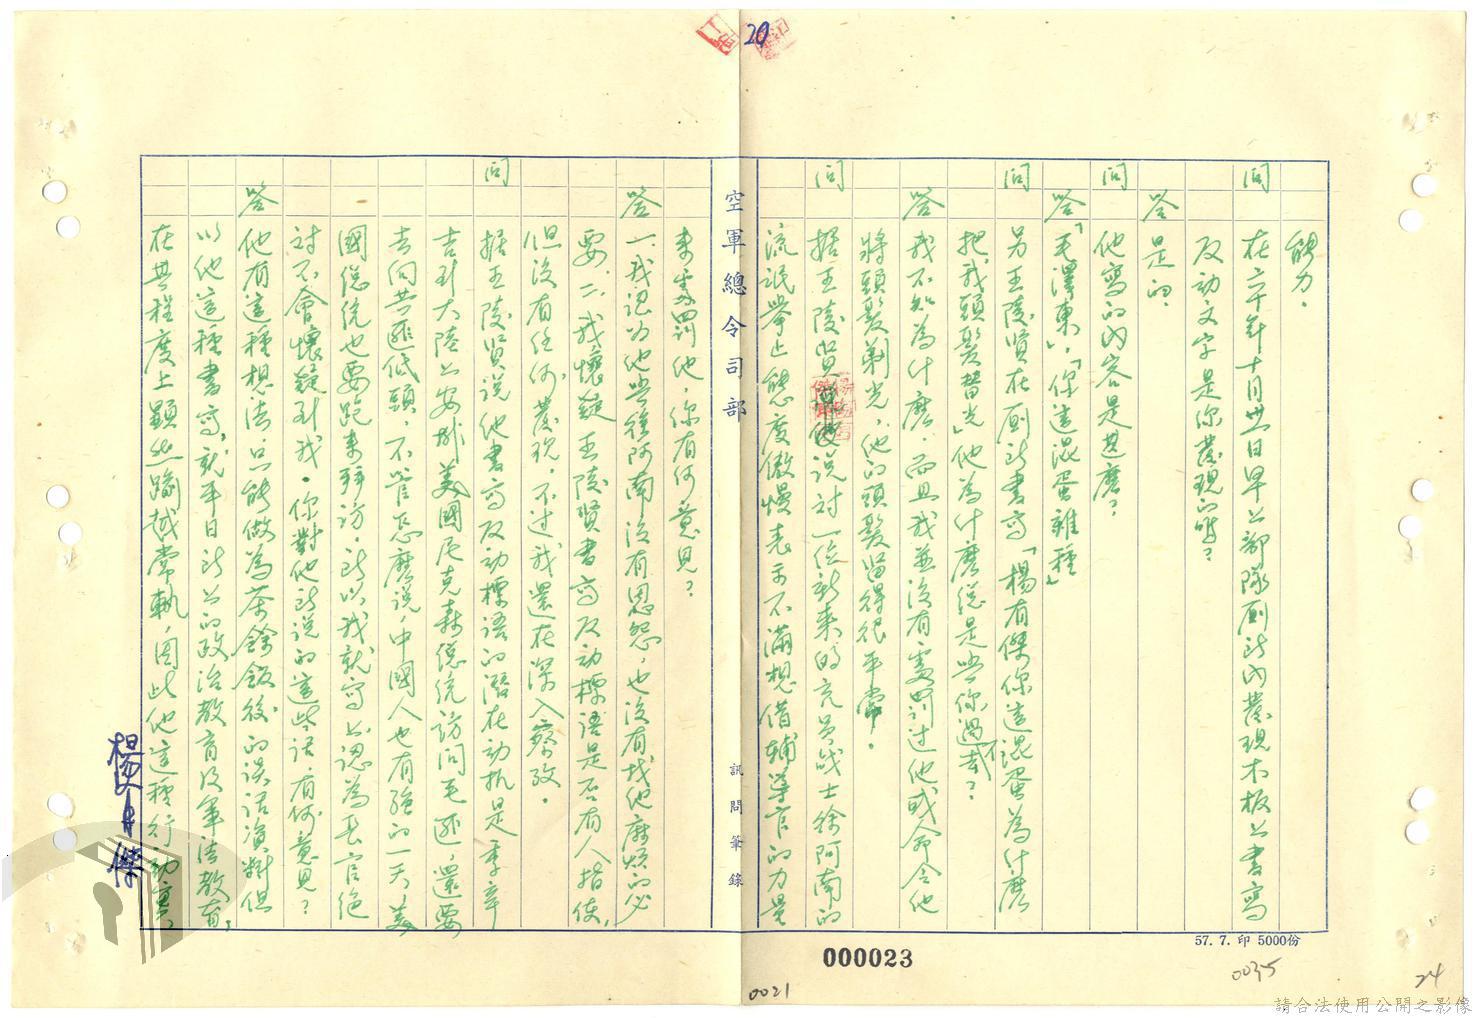 20
能力。
問 在六十年十月卅一日早上部隊厠所內發現木板上書寫
反动文字是你發現的嗎？
答 是的。
問 他寫的內容是甚麼？
答「毛澤東」，「你這混蛋雜種」
問 另王陵賢在厠所書寫「楊有傑你這混蛋為什麼
把我頭髮替光」他為什麼總是與你過不去？
答 我不知為什麼，而且我並沒有處罰过他或命令他
將頭髮剃光，他的頭髮留得很平常。
問 据王陵賢說对一位新来的充員战士徐阿南的
流氓舉止態度傲慢表示不滿想借輔導官的力量
空軍總令司部
訊問筆錄
来處罰他，你有何意見？
答 一、我認为他與徐阿南沒有恩怨，也沒有找他麻煩的必
要。二、我懷疑王陵賢書寫反动標語是否有人指使，
但沒有任何發現，不过我還在深入察考。
問 据王陵賢說他書寫反动標語的潛在动机是季辛
吉到大陸上安排美國尼克森總統訪問毛匪，還要
去向共匪低頭，不管怎麼說，中國人也有強的一天，美
國總統也要跑来拜訪，所以我就寫上認為長官絕
对不會懷疑到我。你對他所說的這些話，有何意見？
答 他有這種想法，只能做為茶餘飯後的談話資料但
以他這種書寫，就平日所上的政治教育及軍法教育，
在某程度上顯然踰越常軌，因此他這種行动
楊有傑
57. 7. 印 5000份
000023
0021
0035
24
請合法使用公開之影像